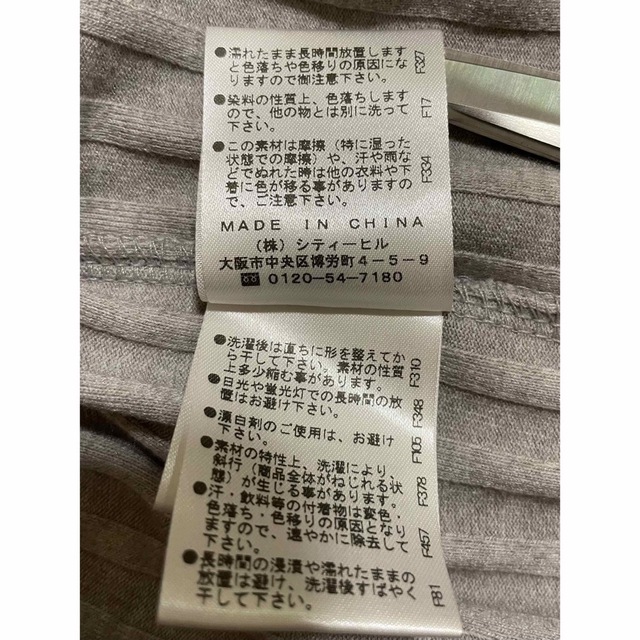 ●濡れたまま長時間放置しますと色落ちや色移りの原因になりますので御注意下さい。 F327
●染料の性質上、色落ちしますので、他の物とは別に洗って下さい。 F17
●この素材は摩擦（特に湿った状態での摩擦）や、汗や雨などでぬれた時は他の衣料や下着に色が移る事がありますので、ご注意下さい。 F334
MADE IN CHINA
（株）シティーヒル
大阪市中央区博労町4－5－9
0120-54-7180
●洗濯後は直ちに形を整えてから干して下さい。素材の性質上多少縮む事があります。 F310
●日光や蛍光灯での長時間の放置はお避け下さい。 F348
●漂白剤のご使用は、お避け下さい。 F105
●素材の特性上、洗濯により、斜行（商品全体がねじれる状態）が生じる事があります。 F378
●汗・飲料等の付着物は変色・色落ち・色移りの原因となりますので、速やかに除去して下さい。 F457
●長時間の浸漬や濡れたままの放置は避け、洗濯後すばやく干して下さい。 F81